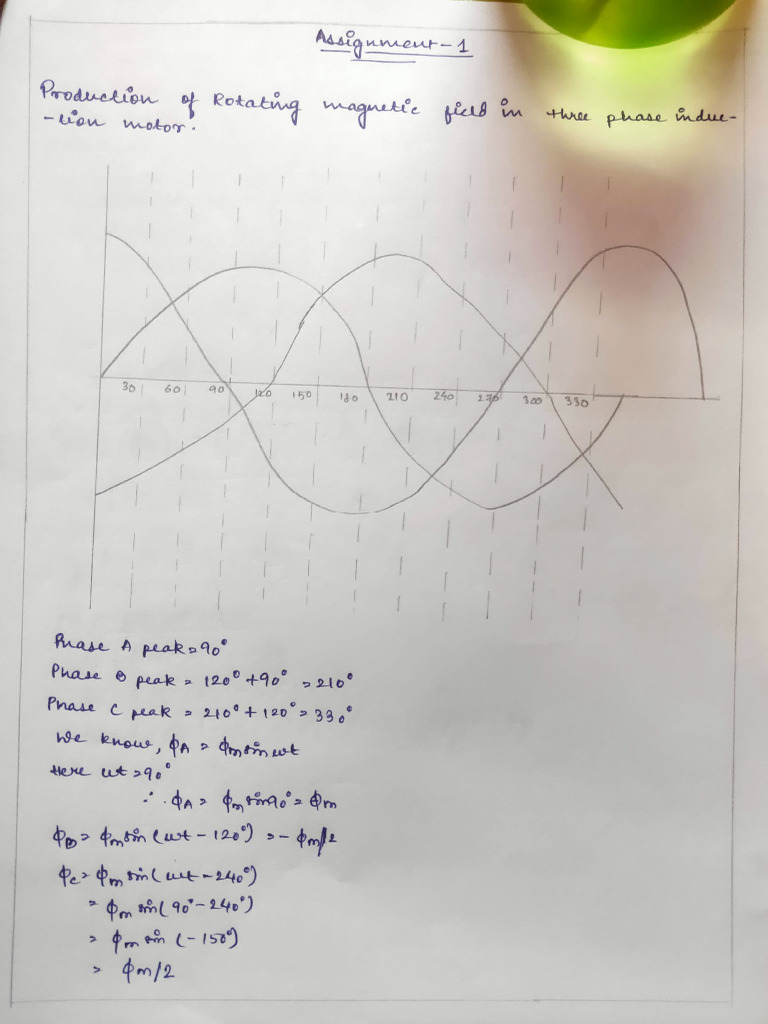 Assignment-1
Production of Rotating magnetic field in three phase induc-
-tion motor.
30 60 90 120 150 180 210 240 270 300 330
Phase A peak = 90°
Phase B peak = 120° + 90° = 210°
Phase C peak = 210° + 120° = 330°
We know, ϕA = ϕm sin wt
Here wt = 90°
∴ ϕA = ϕm sin90° = ϕm
ϕB = ϕm sin (wt - 120°) = - ϕm/2
ϕC = ϕm sin (wt - 240°)
= ϕm sin (90° - 240°)
= ϕm sin (-150°)
= ϕm/2